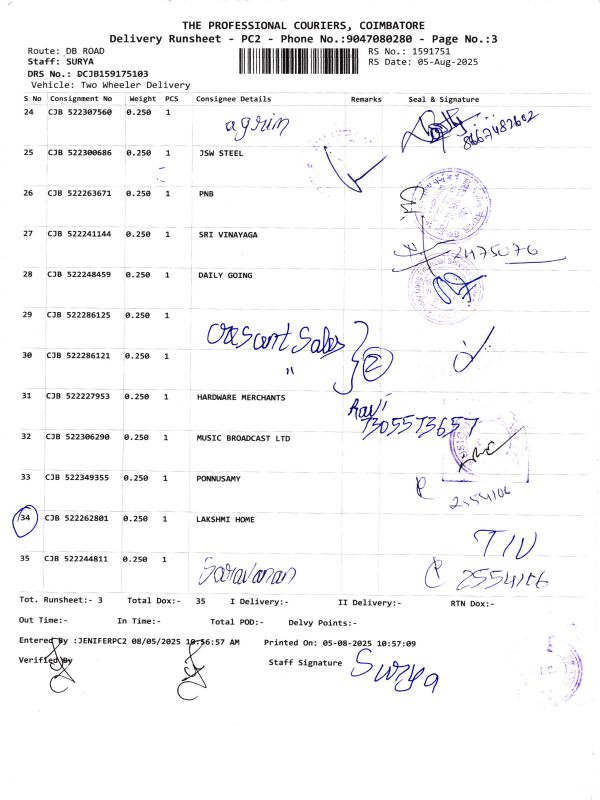 THE PROFESSIONAL COURIERS, COIMBATORE
Delivery Runsheet - PC2 - Phone No.:9047080280 - Page No.:3
Route: DB ROAD RS No.: 1591751
Staff: SURYA RS Date: 05-Aug-2025
DRS No.: DCJB159175103
Vehicle: Two Wheeler Delivery
S No Consignment No Weight PCS Consignee Details Remarks Seal & Signature
24 CJB 522307560 0.250 1 agrim 8667482602
25 CJB 522300686 0.250 1 JSW STEEL
26 CJB 522263671 0.250 1 PNB
27 CJB 522241144 0.250 1 SRI VINAYAGA 2475076
28 CJB 522248459 0.250 1 DAILY GOING
29 CJB 522286125 0.250 1 Crescent Sales
30 CJB 522286121 0.250 1 " 2
31 CJB 522227953 0.250 1 HARDWARE MERCHANTS Ravi
7305573657
32 CJB 522306290 0.250 1 MUSIC BROADCAST LTD
33 CJB 522349355 0.250 1 PONNUSAMY
2554106
34 CJB 522262801 0.250 1 LAKSHMI HOME
35 CJB 522244811 0.250 1 Saravanan 2554106
Tot. Runsheet:- 3 Total Dox:- 35 I Delivery:- II Delivery:- RTN Dox:-
Out Time:- In Time:- Total POD:- Delvy Points:-
Entered By :JENIFERPC2 08/05/2025 10:56:57 AM Printed On: 05-08-2025 10:57:09
Verified By Staff Signature Surya